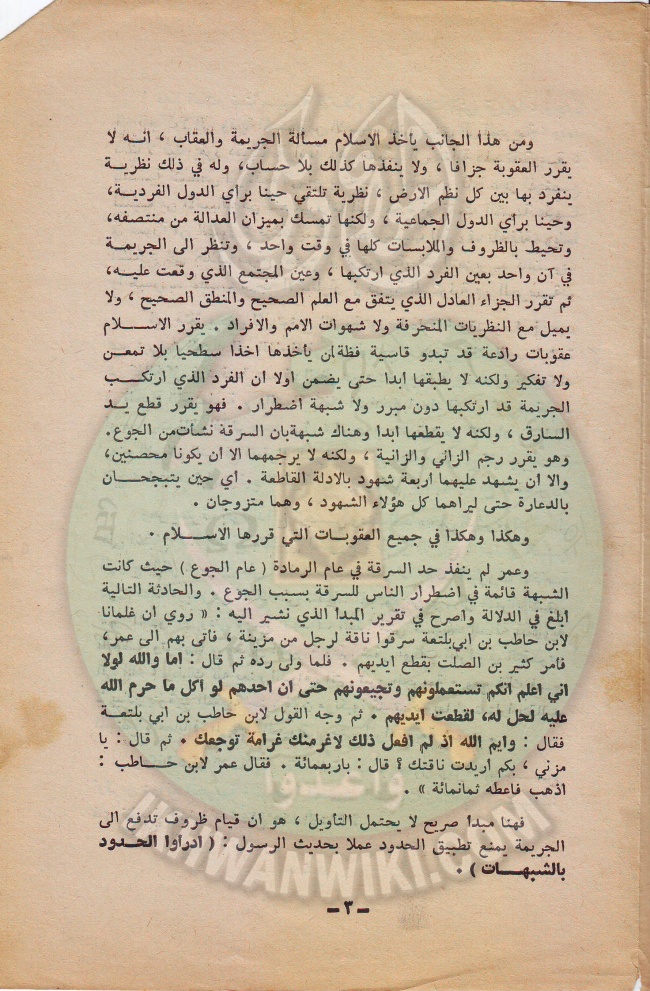 ومن هذا الجانب يأخذ الاسلام مسألة الجريمة والعقاب ، انه لا
يقرر العقوبة جزافا ، ولا ينفذها كذلك بلا حساب، وله في ذلك نظرية
ينفرد بها بين كل نظم الارض ، نظرية تلتقي حينا برأي الدول الفردية،
وحينا برأي الدول الجماعية ، ولكنها تمسك بميزان العدالة من منتصفه،
وتحيط بالظروف والملابسات كلها في وقت واحد ، وتنظر الى الجريمة
في آن واحد بعين الفرد الذي ارتكبها ، وعين المجتمع الذي وقعت عليه،
ثم تقرر الجزاء العادل الذي يتفق مع العلم الصحيح والمنطق الصحيح ، ولا
يميل مع النظريات المنحرفة ولا شهوات الامم والافراد . يقرر الاسلام
عقوبات رادعة قد تبدو قاسية فظة ان يأخذها اخذا سطحيا بلا تمعن
ولا تفكير ولكنه لا يطبقها ابدا حتى يضمن اولا ان الفرد الذي ارتكب
الجريمة قد ارتكبها دون مبرر ولا شبهة اضطرار . فهو يقرر قطع يد
السارق ، ولكنه لا يقطعها ابدا وهناك شبهة بان السرقة نشأت من الجوع.
وهو يقرر رجم الزاني والزانية ، ولكنه لا يرجمهما الا ان يكونا محصنين،
والا ان يشهد عليهما أربعة شهود بالادلة القاطعة . أي حين يتبجحان
بالدعارة حتى ليراهما كل هؤلاء الشهود ، وهما متزوجان .
وهكذا وهكذا في جميع العقوبات التي قررها الاسلام .
وعمر لم ينفذ حد السرقة في عام الرمادة ( عام الجوع ) حيث كانت
الشبهة قائمة في اضطرار الناس للسرقة بسبب الجوع . والحادثة التالية
ابلغ في الدلالة واصرح في تقرير المبدأ الذي نشير اليه : « روي ان غلمانا
لابن حاطب بن ابي بلتعة سرقوا ناقة لرجل من مزينة ، فأتى بهم الى عمر،
فامر كثير بن الصلت بقطع ايديهم . فلما ولى رده ثم قال : اما والله لولا
اني اعلم انكم تستعملونهم وتجيعونهم حتى ان احدهم لو أكل ما حرم الله
عليه لحل له، لقطعت ايديهم . ثم وجه القول لابن حاطب بن ابي بلتعة
فقال : وايم الله اذ لم افعل ذلك لاغرمنك غرامة توجعك . ثم قال : يا
مزني ، بكم اريدت ناقتك ؟ قال : باربعمائة . فقال عمر لابن حاطب :
اذهب فاعطه ثمانمائة » .
فهنا مبدأ صريح لا يحتمل التأويل ، هو ان قيام ظروف تدفع الى
الجريمة يمنع تطبيق الحدود عملا بحديث الرسول : ( ادرأوا الحدود
بالشبهات ) .
– ٣ –
وأعدوا
IKHWANWIKI.COM